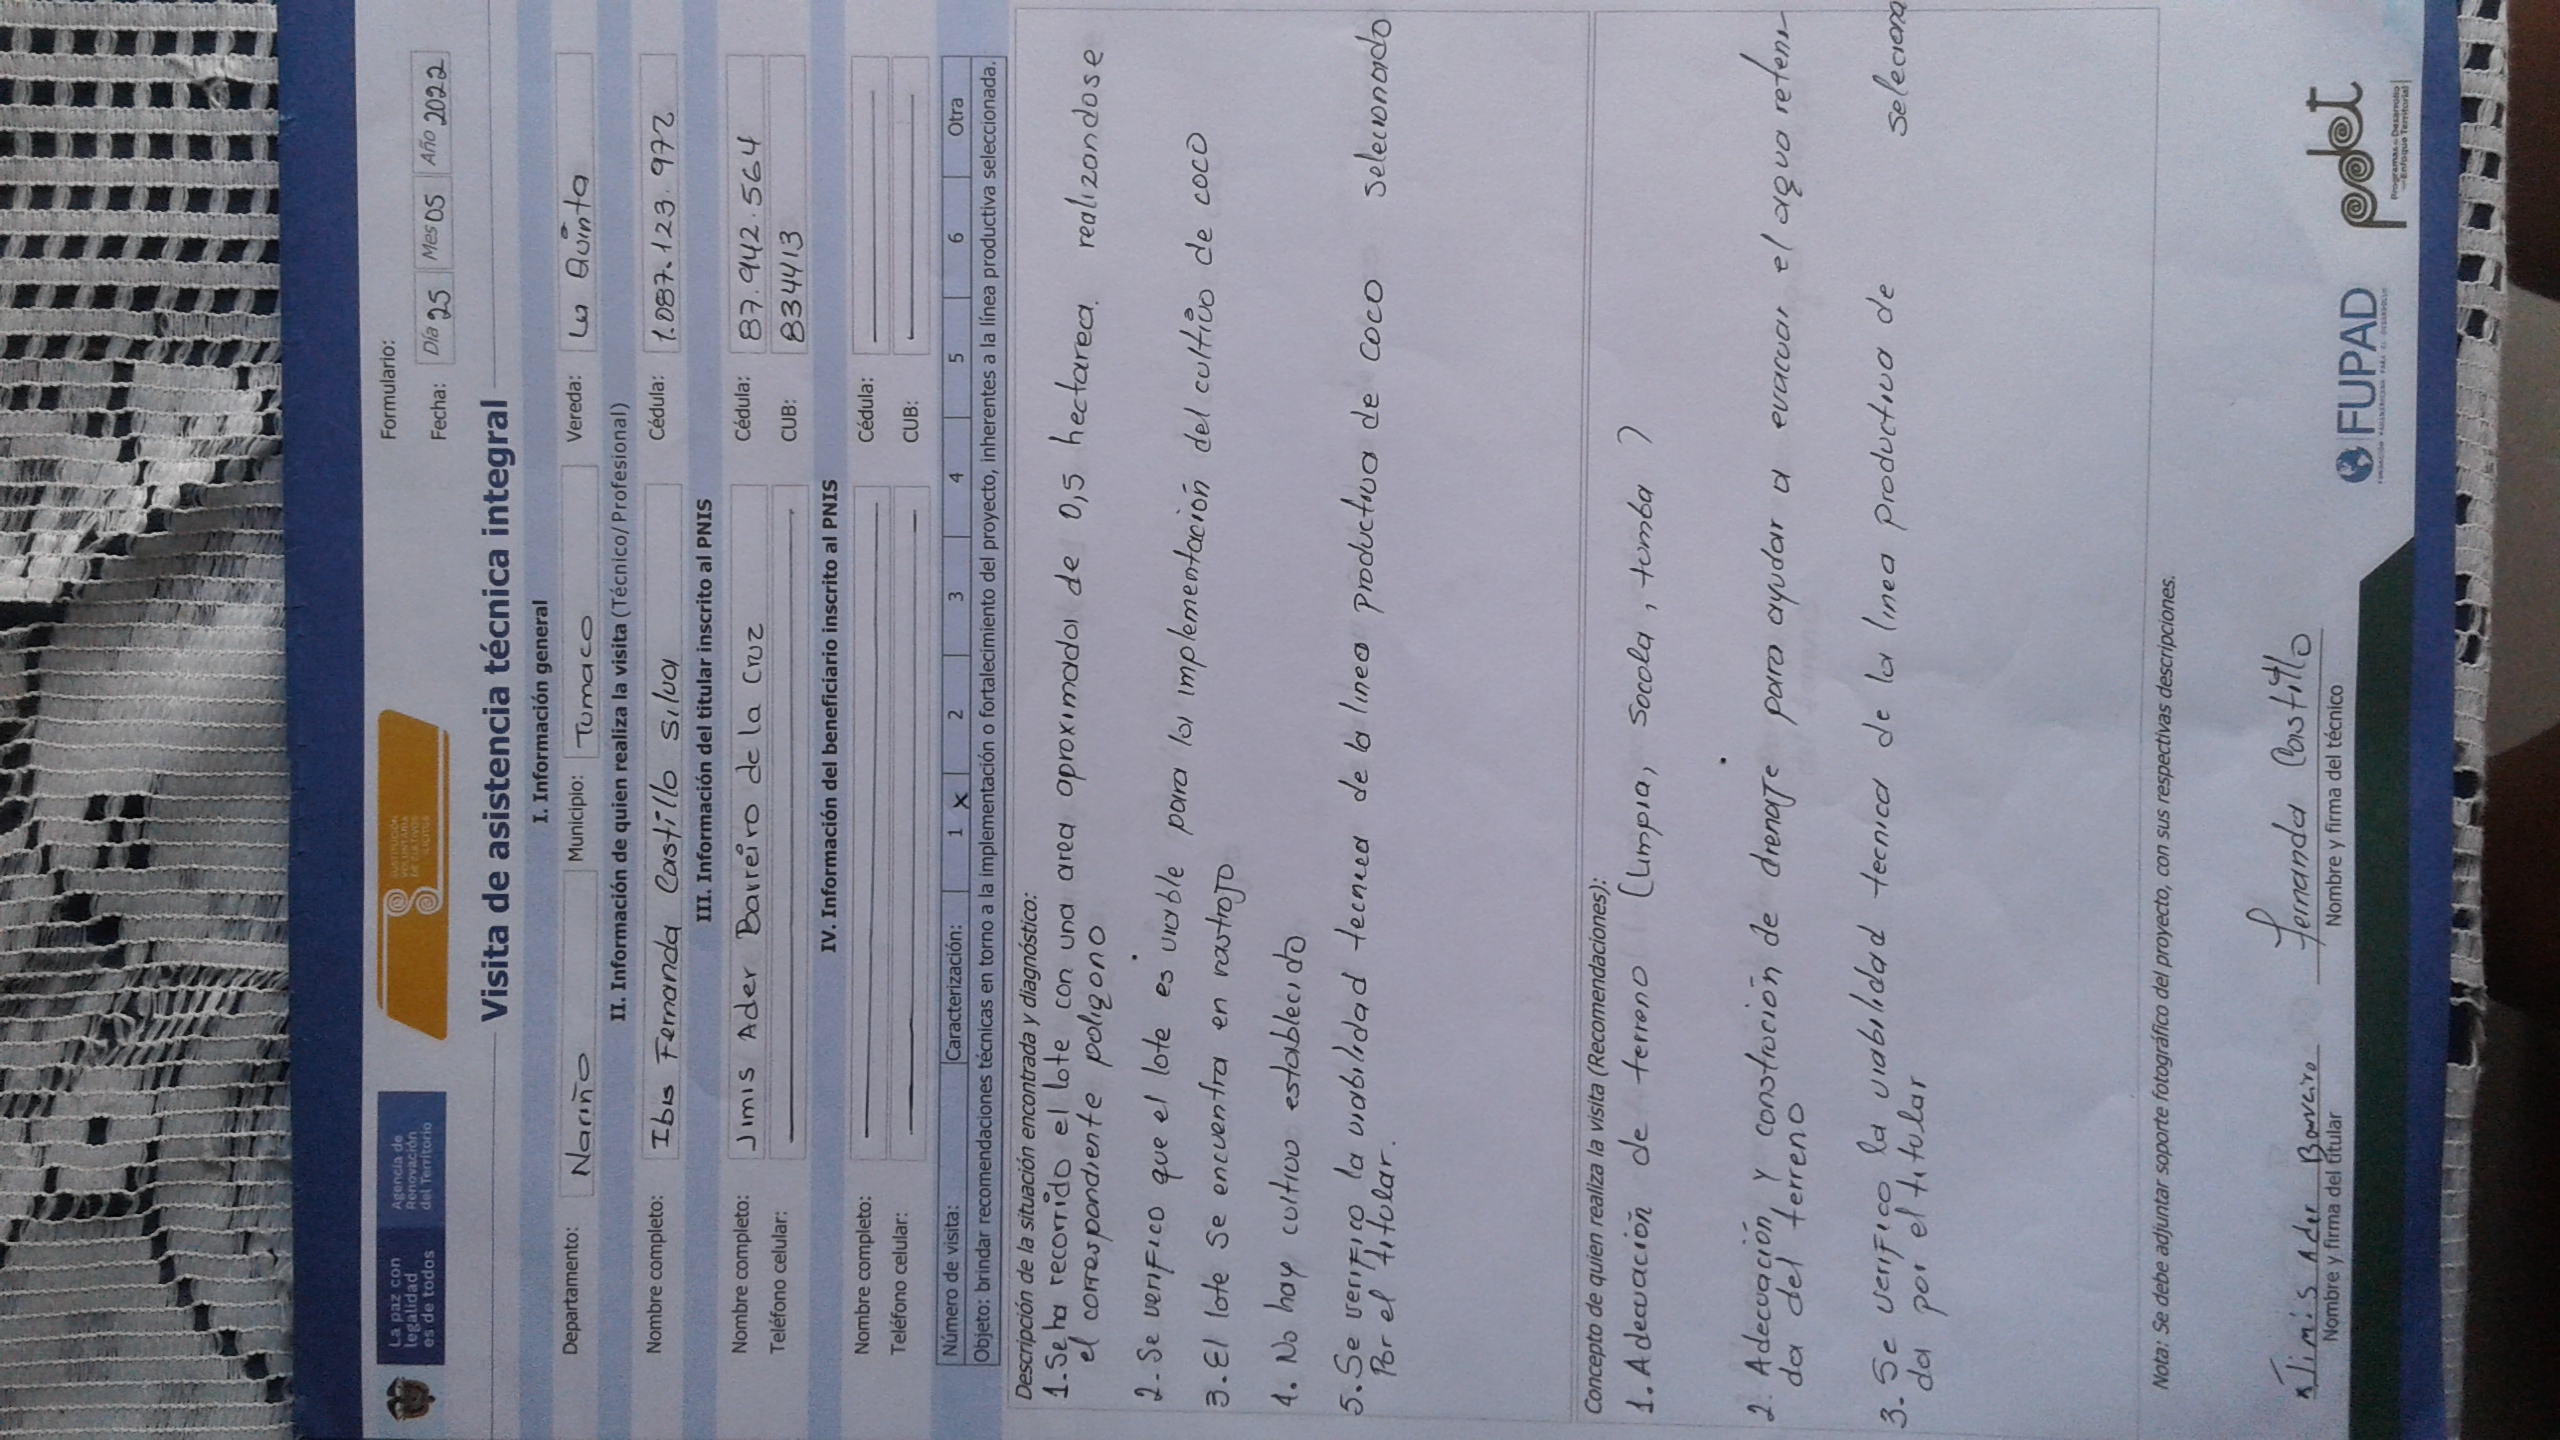 La paz con
legalidad
es de todos
Agencia de
Renovación
del Territorio
SUSTITUCIÓN
VOLUNTARIA
DE CULTIVOS
ILÍCITOS
Formulario:
Fecha: Día 25 Mes 05 Año 2022
Visita de asistencia técnica integral
I. Información general
Departamento: Nariño Municipio: Tumaco Vereda: La Quinta
II. Información de quien realiza la visita (Técnico/Profesional)
Nombre completo: Ibis Fernanda Castillo Silva Cédula: 1.087.123.972
III. Información del titular inscrito al PNIS
Nombre completo: Jimis Ader Barreiro de la Cruz Cédula: 87.942.564
Teléfono celular: CUB: 834413
IV. Información del beneficiario inscrito al PNIS
Nombre completo: Cédula:
Teléfono celular: CUB:
Número de visita: Caracterización: 1 X 2 3 4 5 6 Otra
Objeto: brindar recomendaciones técnicas en torno a la implementación o fortalecimiento del proyecto, inherentes a la línea productiva seleccionada.
Descripción de la situación encontrada y diagnóstico:
1. Se ha recorrido el lote con una area aproximada de 0,5 hectarea. realizandose
el correspondiente poligono
2. Se verifico que el lote es viable para la implementación del cultivo de coco
3. El lote se encuentra en rastrojo
4. No hay cultivo establecido
5. Se verifico la viabilidad tecnica de la linea productiva de coco selecionado
Por el titular.
Concepto de quien realiza la visita (Recomendaciones):
1. Adecuación de terreno (Limpia, Socola, tumba)
2. Adecuación y construción de drenaje para ayudar a evacuar el agua reteni-
da del terreno
3. Se verifico la viabilidad tecnica de la linea productiva de seleciona
da por el titular
Nota: Se debe adjuntar soporte fotográfico del proyecto, con sus respectivas descripciones.
x Jimis Ader Barreiro
Nombre y firma del titular
Fernanda Castillo
Nombre y firma del técnico
FUPAD
pdet
Programas de Desarrollo
con Enfoque Territorial